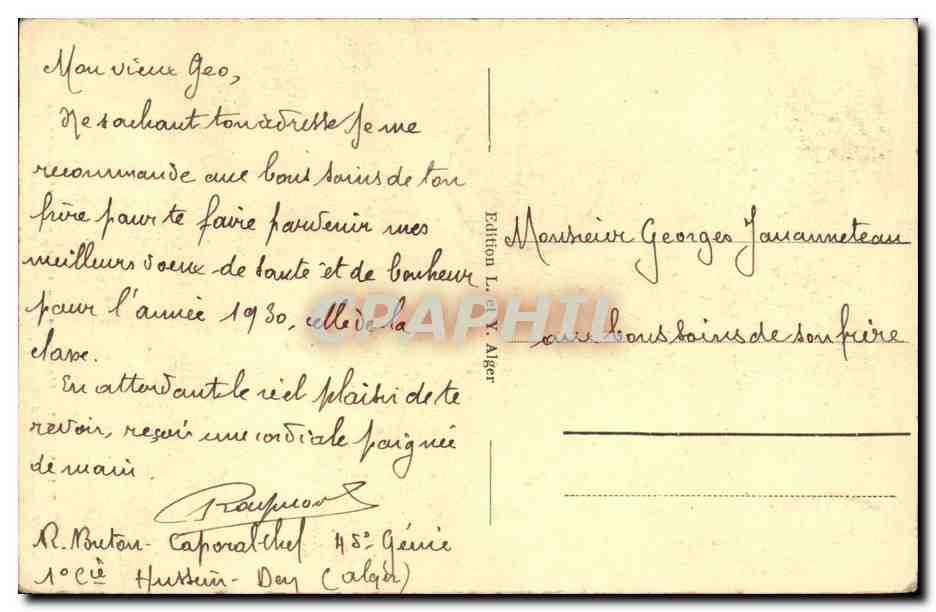 Mon vieux Geo,
Ne sachant ton adresse je me
recommande aux bons soins de ton
frère pour te faire parvenir mes
meilleurs voeux de santé et de bonheur
pour l'année 1930, celle de la
classe.
En attendant le réel plaisir de te
revoir, reçois une cordiale poignée
de main.
Raymond
R. Breton - Caporal chef 45e Génie
1e Cie Hussein-Dey (Alger)
Edition L. et Y. Alger
Monsieur Georges Janannetean
aux bons soins de son frère
CPAPHIL